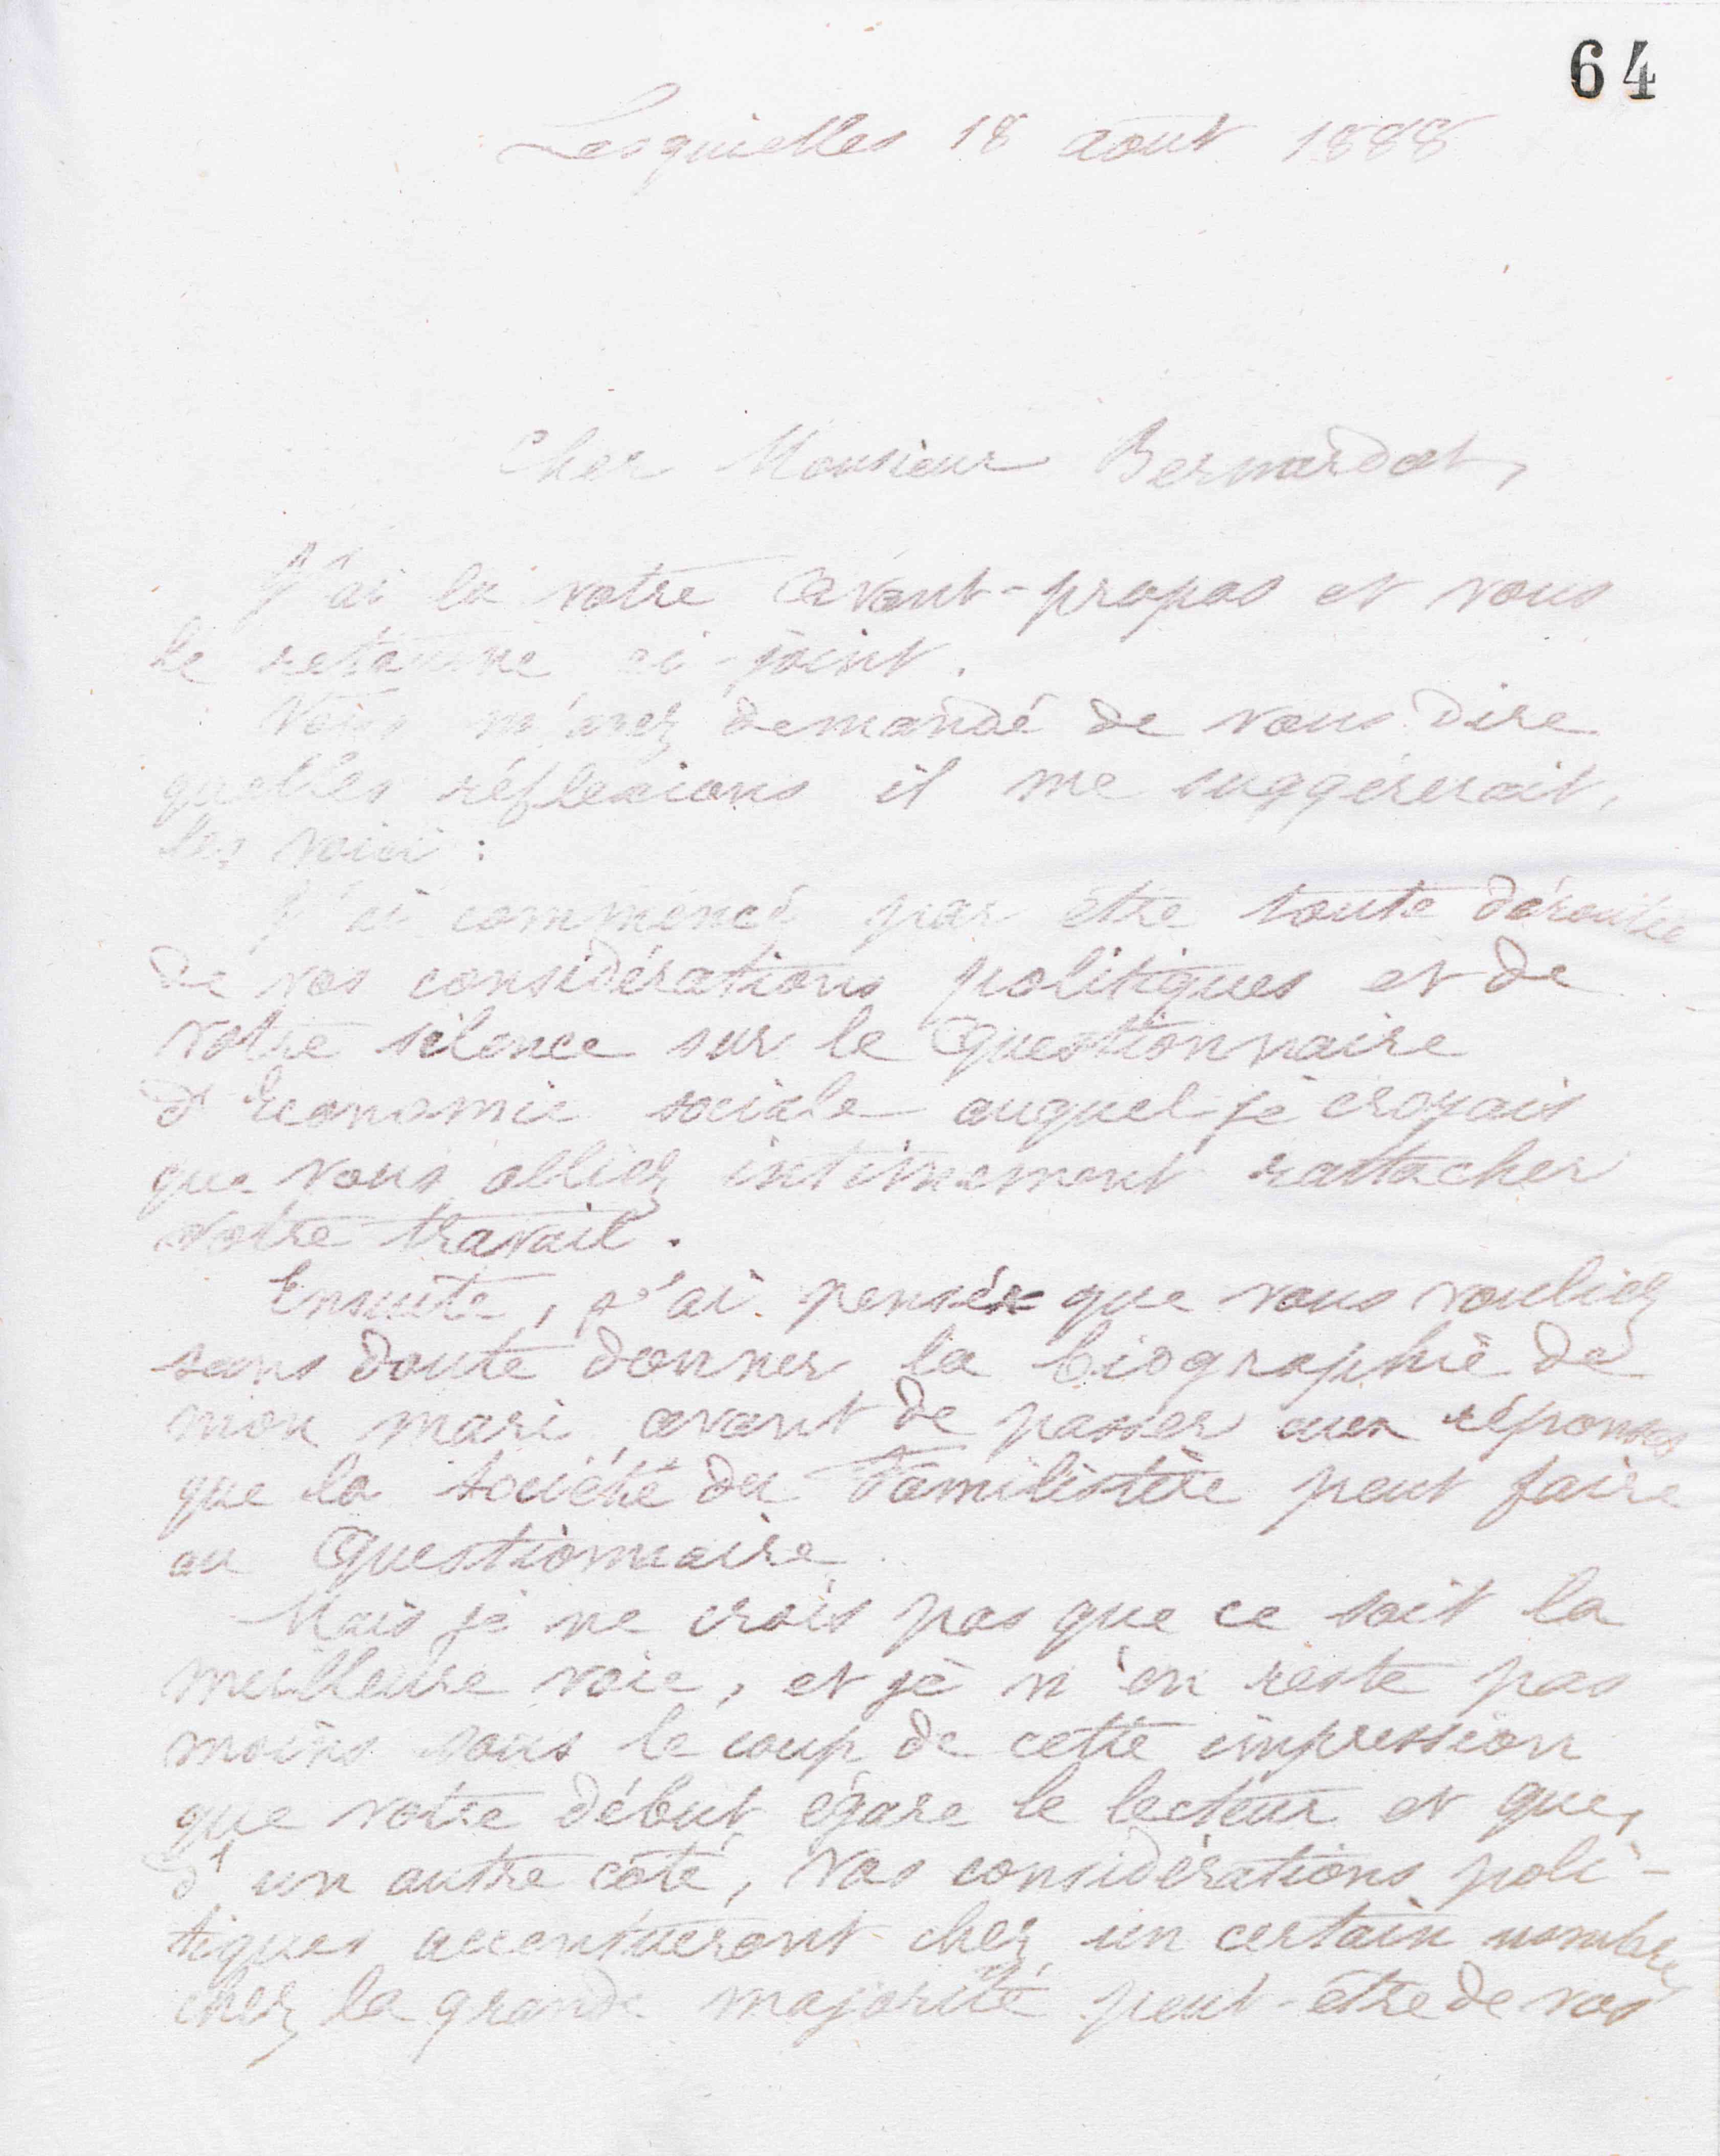 64
Lesquielles 18 août 1888
Cher Monsieur Bernardot,
J'ai lu votre avant-propos et vous
le retourne ci-joint.
Vous m'avez demandé de vous dire
quelles réflexions il me suggérerait,
les voici :
J'ai commencé par être toute déroutée
de vos considérations politiques et de
votre silence sur le Questionnaire
d'Economie sociale auquel je croyais
que vous alliez intimement rattacher
votre travail.
Ensuite, j'ai pensé que vous vouliez
sans doute donner la biographie de
mon mari avant de passer aux réponses
que la société du Familistère peut faire
au Questionnaire.
Mais je ne crois pas que ce soit la
meilleure voie, et je n'en reste pas
moins sous le coup de cette impression
que votre début égare le lecteur et que,
d'un autre côté, vos considérations poli-
tiques accentueront chez un certain nombre,
chez la grande majorité peut-être de vos